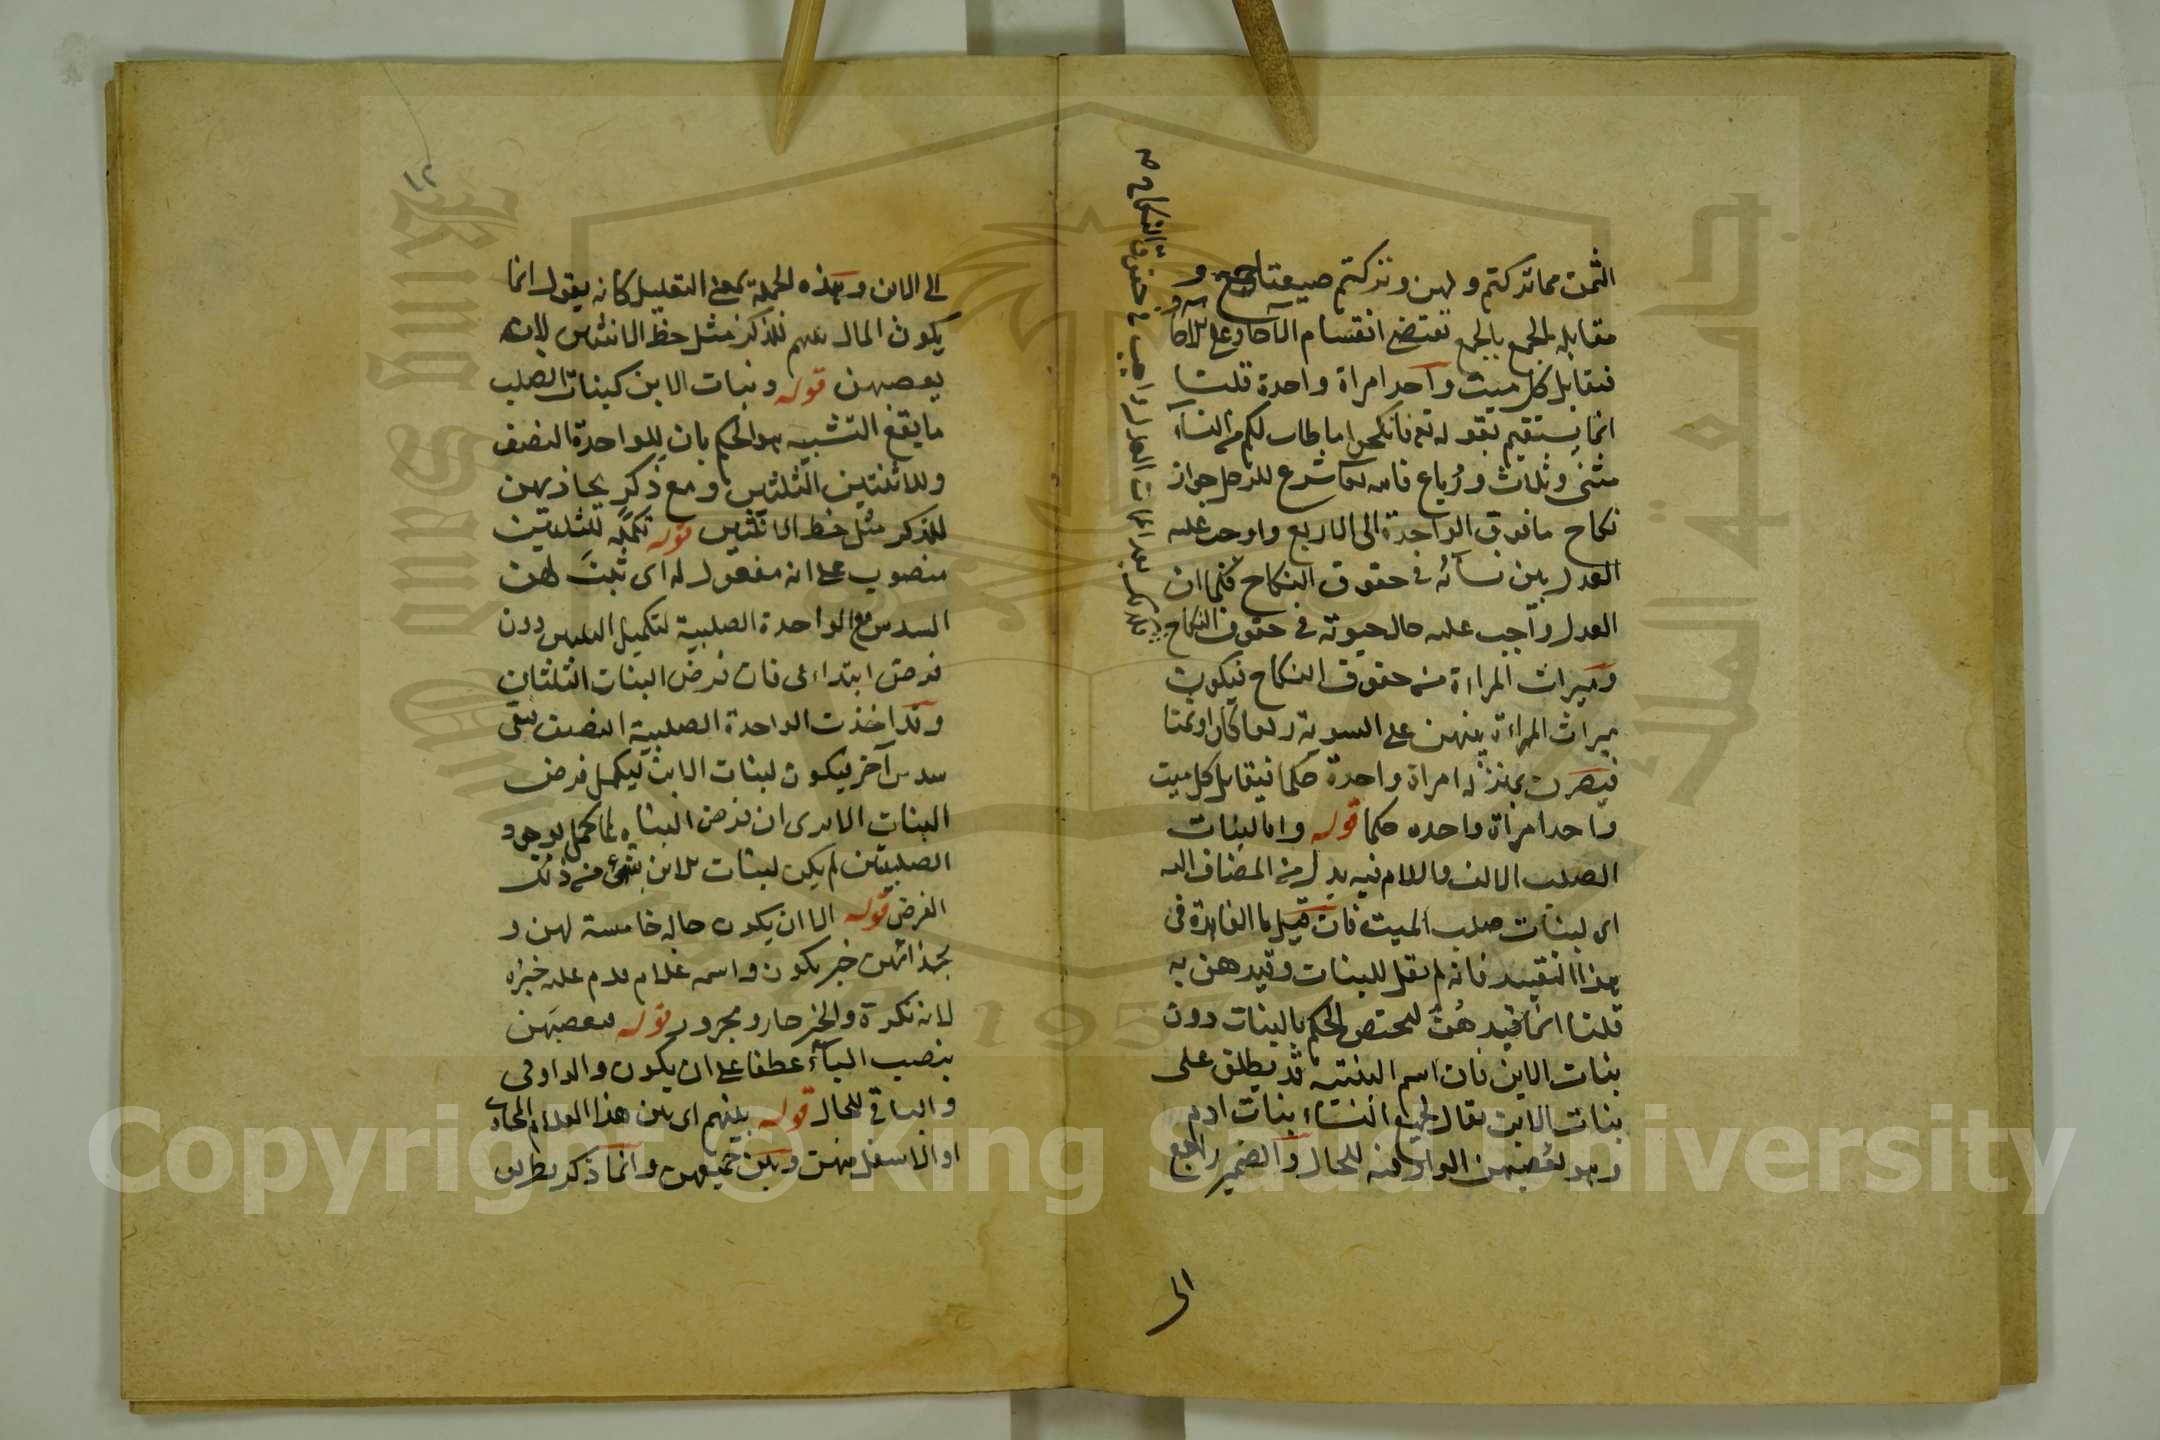 الثمن مما تركتم ولهن وتركتم صيغتا جمع و
مقابلة الجمع بالجمع تقتضي انقسام الآحاد على الآحاد
فيقابل كل ميت واحد امراة واحدة قلنا
انما يستقيم بقوله تع فانكحوا ما طاب لكم من النسآء
مثنى وثلاث ورباع فانه لما شرع للرجل جواز
نكاح ما فوق الواحدة الى الاربع واوجب عليه
العدل بين نسآئه في حقوق النكاح فكما ان
العدل واجب عليه حال حيوته في حقوق النكاح
وميراث المراءة من حقوق النكاح فيكون
ميراث المراءة بينهن على السوية
فيصرن بمنزلة امراة واحدة حكما فيقابل كل ميت
واحد امراة واحده حكما قوله واما لبنات
الصلب الالف واللام فيه بدل من المضاف اليه
اى لبنات صلب الميت فان قيل ما الفائدة في
هذا التقييد فانه لم يقل للبنات وقيدهن به
قلنا انما قيدهن ليختص الحكم بالبنات دون
بنات الابن فان اسم البنتية قد يطلق على
بنات الابن يقال لجميع النساء بنات ادم
وهو يعصبهن الواو فيه للحال والضمير راجع
الى
العدل واجب في حقوق النكاح صح
١٢
الى الابن وهذه الجملة بمعنى التعليل كانه يقول انما
يكون المال بينهم للذكر مثل حظ الانثيين لانه
يعصبهن قوله وبنات الابن كبنات الصلب
ما يقع التشبيه هو الحكم بان للواحدة النصف
وللاثنتين الثلثين ومع ذكر يحاذيهن
للذكر مثل حظ الانثيين قوله تكملة للثلثين
منصوب على انه مفعول له اى ثبت لهن
السدس مع الواحدة الصلبية لتكميل الثلثين دون
فرض ابتداءى فان فرض البنات الثلثان
وقد اخذت الواحدة الصلبية النصف بقى
سدس آخر ليكون لبنات الابن ليكمل فرض
البنات الا يرى ان فرض البنات لما كمل بوجود
الصلبيتين لم يكن لبنات الابن شيء من ذلك
الفرض قوله الا ان يكون حالة خامسة لهن و
بحذائهن خبر يكون واسمه غلام قدم عليه خبره
لانه نكرة والخبر جار ومجرور قوله فيعصبهن
بنصب البآء عطفا على ان يكون والواو في
والباقي للحال قوله بينهم اى بين هذا الغلام المحاذى
او الاسفل منهن وبين جميعهن وانما ذكر بطريق